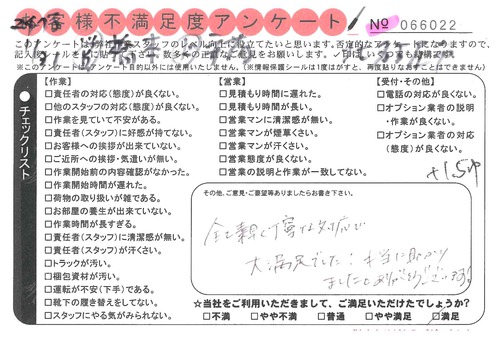 お客様不満足度アンケート
№ 066022
このアンケートは弊社作業スタッフのレベル向上に役立てたいと思います。否定的なアンケートになりますので、
※このアンケートはアンケート目的以外には使用いたしません。(※情報保護シールは1度はがすと、再度貼りなおすことはできません)
チェックリスト
【作業】
□責任者の対応(態度)が良くない。
□他のスタッフの対応(態度)が良くない。
□作業を見ていて不安がある。
□責任者(スタッフ)に好感が持てない。
□お客様への挨拶が出来ていない。
□ご近所への挨拶・気遣いが無い。
□作業開始前の内容確認がなかった。
□作業開始時間が遅れた。
□荷物の取り扱いが雑である。
□お部屋の養生が出来ていない。
□作業時間が長すぎる。
□責任者(スタッフ)に清潔感が無い。
□責任者(スタッフ)が汗くさい。
□トラックが汚い。
□梱包資材が汚い。
□運転が不安(下手)である。
□靴下の履き替えをしてない。
□スタッフにやる気がみられない。
【営業】
□見積もり時間に遅れた。
□見積もり時間が長い。
□営業マンに清潔感が無い。
□営業マンが煙草くさい。
□営業マンが汗くさい。
□営業態度が良くない。
□営業の説明と作業が一致してない。
【受付・その他】
□電話の対応が良くない。
□オプション業者の説明
・作業が良くない。
□オプション業者の対応
(態度)が良くない。
その他、ご意見・ご要望等ありましたらお書き下さい。
全て親く丁寧な対応で
大満足でした!本当に助かり
ましたありがとうございます!
☆当社をご利用いただきまして、ご満足いただけたでしょうか?
□不満 □やや不満 □普通 □やや満足 □満足